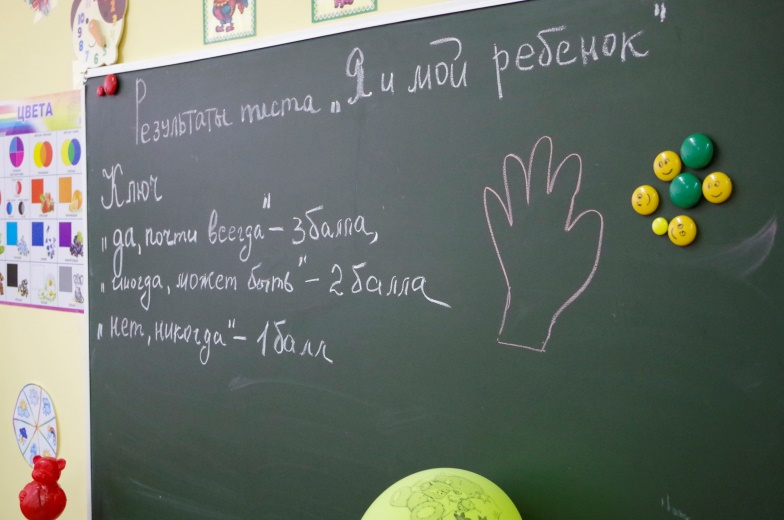 ЦВЕТА
Результаты теста „Я и мой ребенок"
Ключ
„да, почти всегда" – 3 балла,
„иногда, может быть" – 2 балла
„нет, никогда" – 1 балл